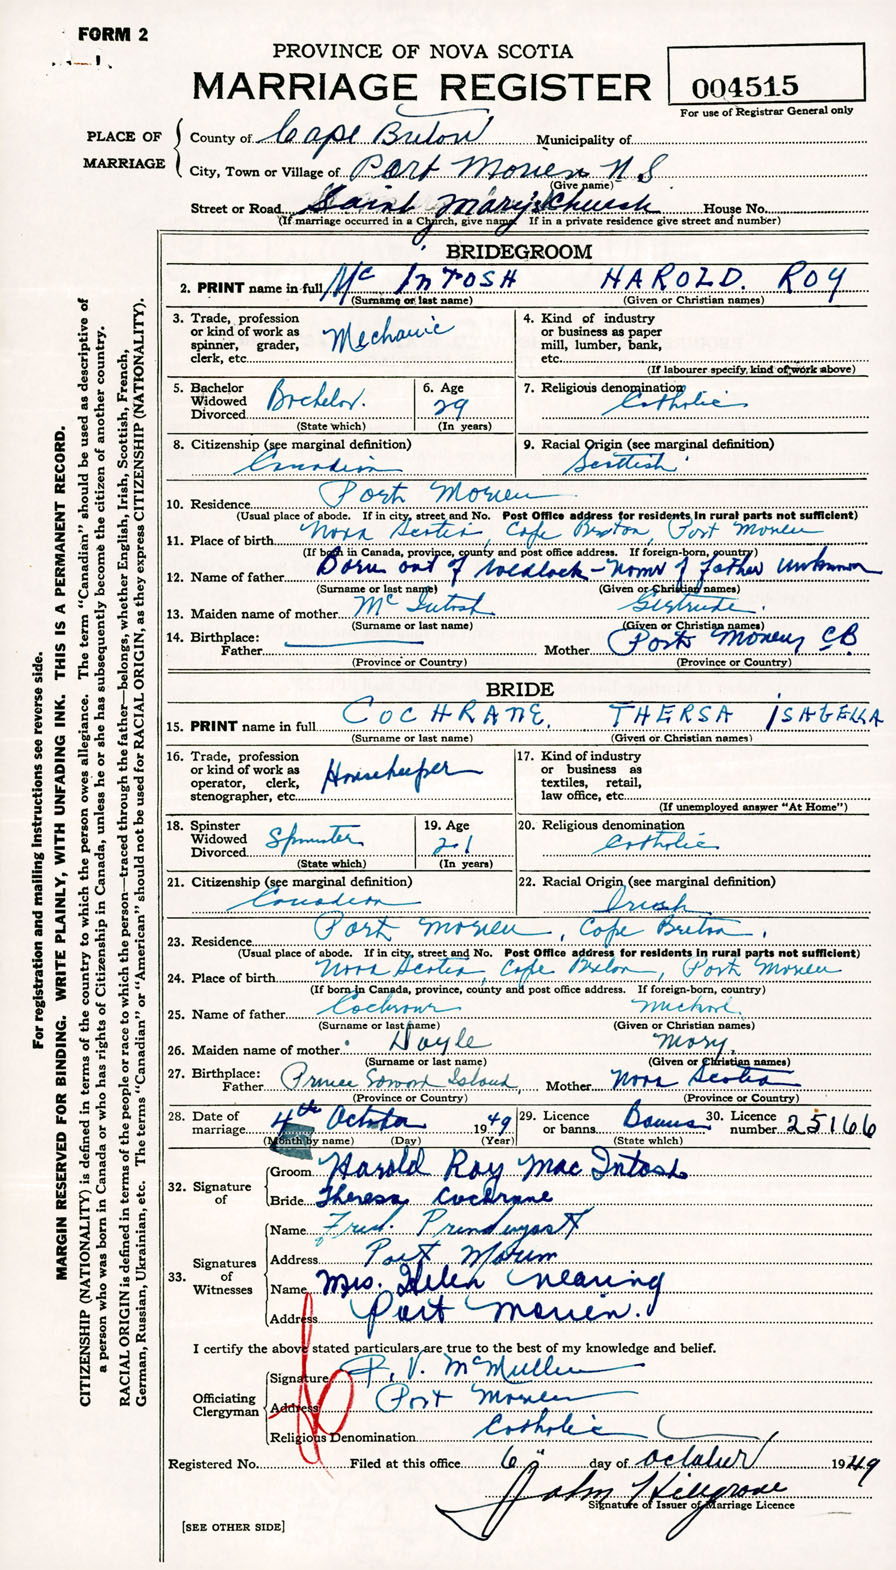 FORM 2
PROVINCE OF NOVA SCOTIA
MARRIAGE REGISTER
004515
For use of Registrar General only
PLACE OF MARRIAGE
County of Cape Breton Municipality of
City, Town or Village of Port Morien N S
(Give name)
Street or Road Saint Mary's Church House No.
(If marriage occurred in a Church, give name. If in a private residence give street and number)
BRIDEGROOM
2. PRINT name in full Mc INTOSH HAROLD. ROY
(Surname or last name) (Given or Christian names)
3. Trade, profession or kind of work as spinner, grader, clerk, etc. Mechanic
4. Kind of industry or business as paper mill, lumber, bank, etc.
(If labourer specify, kind of work above)
5. Bachelor Widowed Divorced Bachelor.
(State which)
6. Age 29
(In years)
7. Religious denomination Catholic
8. Citizenship (see marginal definition) Canadian
9. Racial Origin (see marginal definition) Scottish
10. Residence Port Morien
(Usual place of abode. If in city, street and No. Post Office address for residents in rural parts not sufficient)
11. Place of birth Nova Scotia, Cape Breton, Port Morien
(If born in Canada, province, county and post office address. If foreign-born, country)
12. Name of father Born out of wedlock - Name of father unknown
(Surname or last name) (Given or Christian names)
13. Maiden name of mother McIntosh Gertrude.
(Surname or last name) (Given or Christian names)
14. Birthplace: Father Mother Port Morien, CB
(Province or Country) (Province or Country)
BRIDE
15. PRINT name in full COCHRANE. THERSA ISABELLA
(Surname or last name) (Given or Christian names)
16. Trade, profession or kind of work as operator, clerk, stenographer, etc. Housekeeper
17. Kind of industry or business as textiles, retail, law office, etc.
(If unemployed answer "At Home")
18. Spinster Widowed Divorced Spinster
(State which)
19. Age 21
(In years)
20. Religious denomination Catholic
21. Citizenship (see marginal definition) Canadian
22. Racial Origin (see marginal definition) Irish
23. Residence Port Morien, Cape Breton.
(Usual place of abode. If in city, street and No. Post Office address for residents in rural parts not sufficient)
24. Place of birth Nova Scotia, Cape Breton, Port Morien
(If born in Canada, province, county and post office address. If foreign-born, country)
25. Name of father Cochrane Michael.
(Surname or last name) (Given or Christian names)
26. Maiden name of mother Doyle Mary.
(Surname or last name) (Given or Christian names)
27. Birthplace: Father Prince Edward Island, Mother Nova Scotia
(Province or Country) (Province or Country)
28. Date of marriage 4th October 1949
(Month by name) (Day) (Year)
29. Licence or banns Banns
(State which)
30. Licence number 25166
32. Signature of
Groom Harold Roy MacIntosh
Bride Theresa Cochrane
33. Signatures of Witnesses
Name Fred. Prendergast
Address Port Morien
Name Mrs. Helen Nearing
Address Port Morien.
I certify the above stated particulars are true to the best of my knowledge and belief.
Officiating Clergyman
Signature R. V. McMullin
Address Port Morien
Religious Denomination Catholic
Registered No. Filed at this office 6" day of October 1949
John Hillgrove
Signature of Issuer of Marriage Licence
[SEE OTHER SIDE]
For registration and mailing instructions see reverse side.
MARGIN RESERVED FOR BINDING. WRITE PLAINLY, WITH UNFADING INK. THIS IS A PERMANENT RECORD.
CITIZENSHIP (NATIONALITY) is defined in terms of the country to which the person owes allegiance. The term "Canadian" should be used as descriptive of
a person who was born in Canada or who has rights of Citizenship in Canada, unless he or she has subsequently become the citizen of another country.
RACIAL ORIGIN is defined in terms of the people or race to which the person—traced through the father—belongs, whether English, Irish, Scottish, French,
German, Russian, Ukrainian, etc. The terms "Canadian" or "American" should not be used for RACIAL ORIGIN, as they express CITIZENSHIP (NATIONALITY).